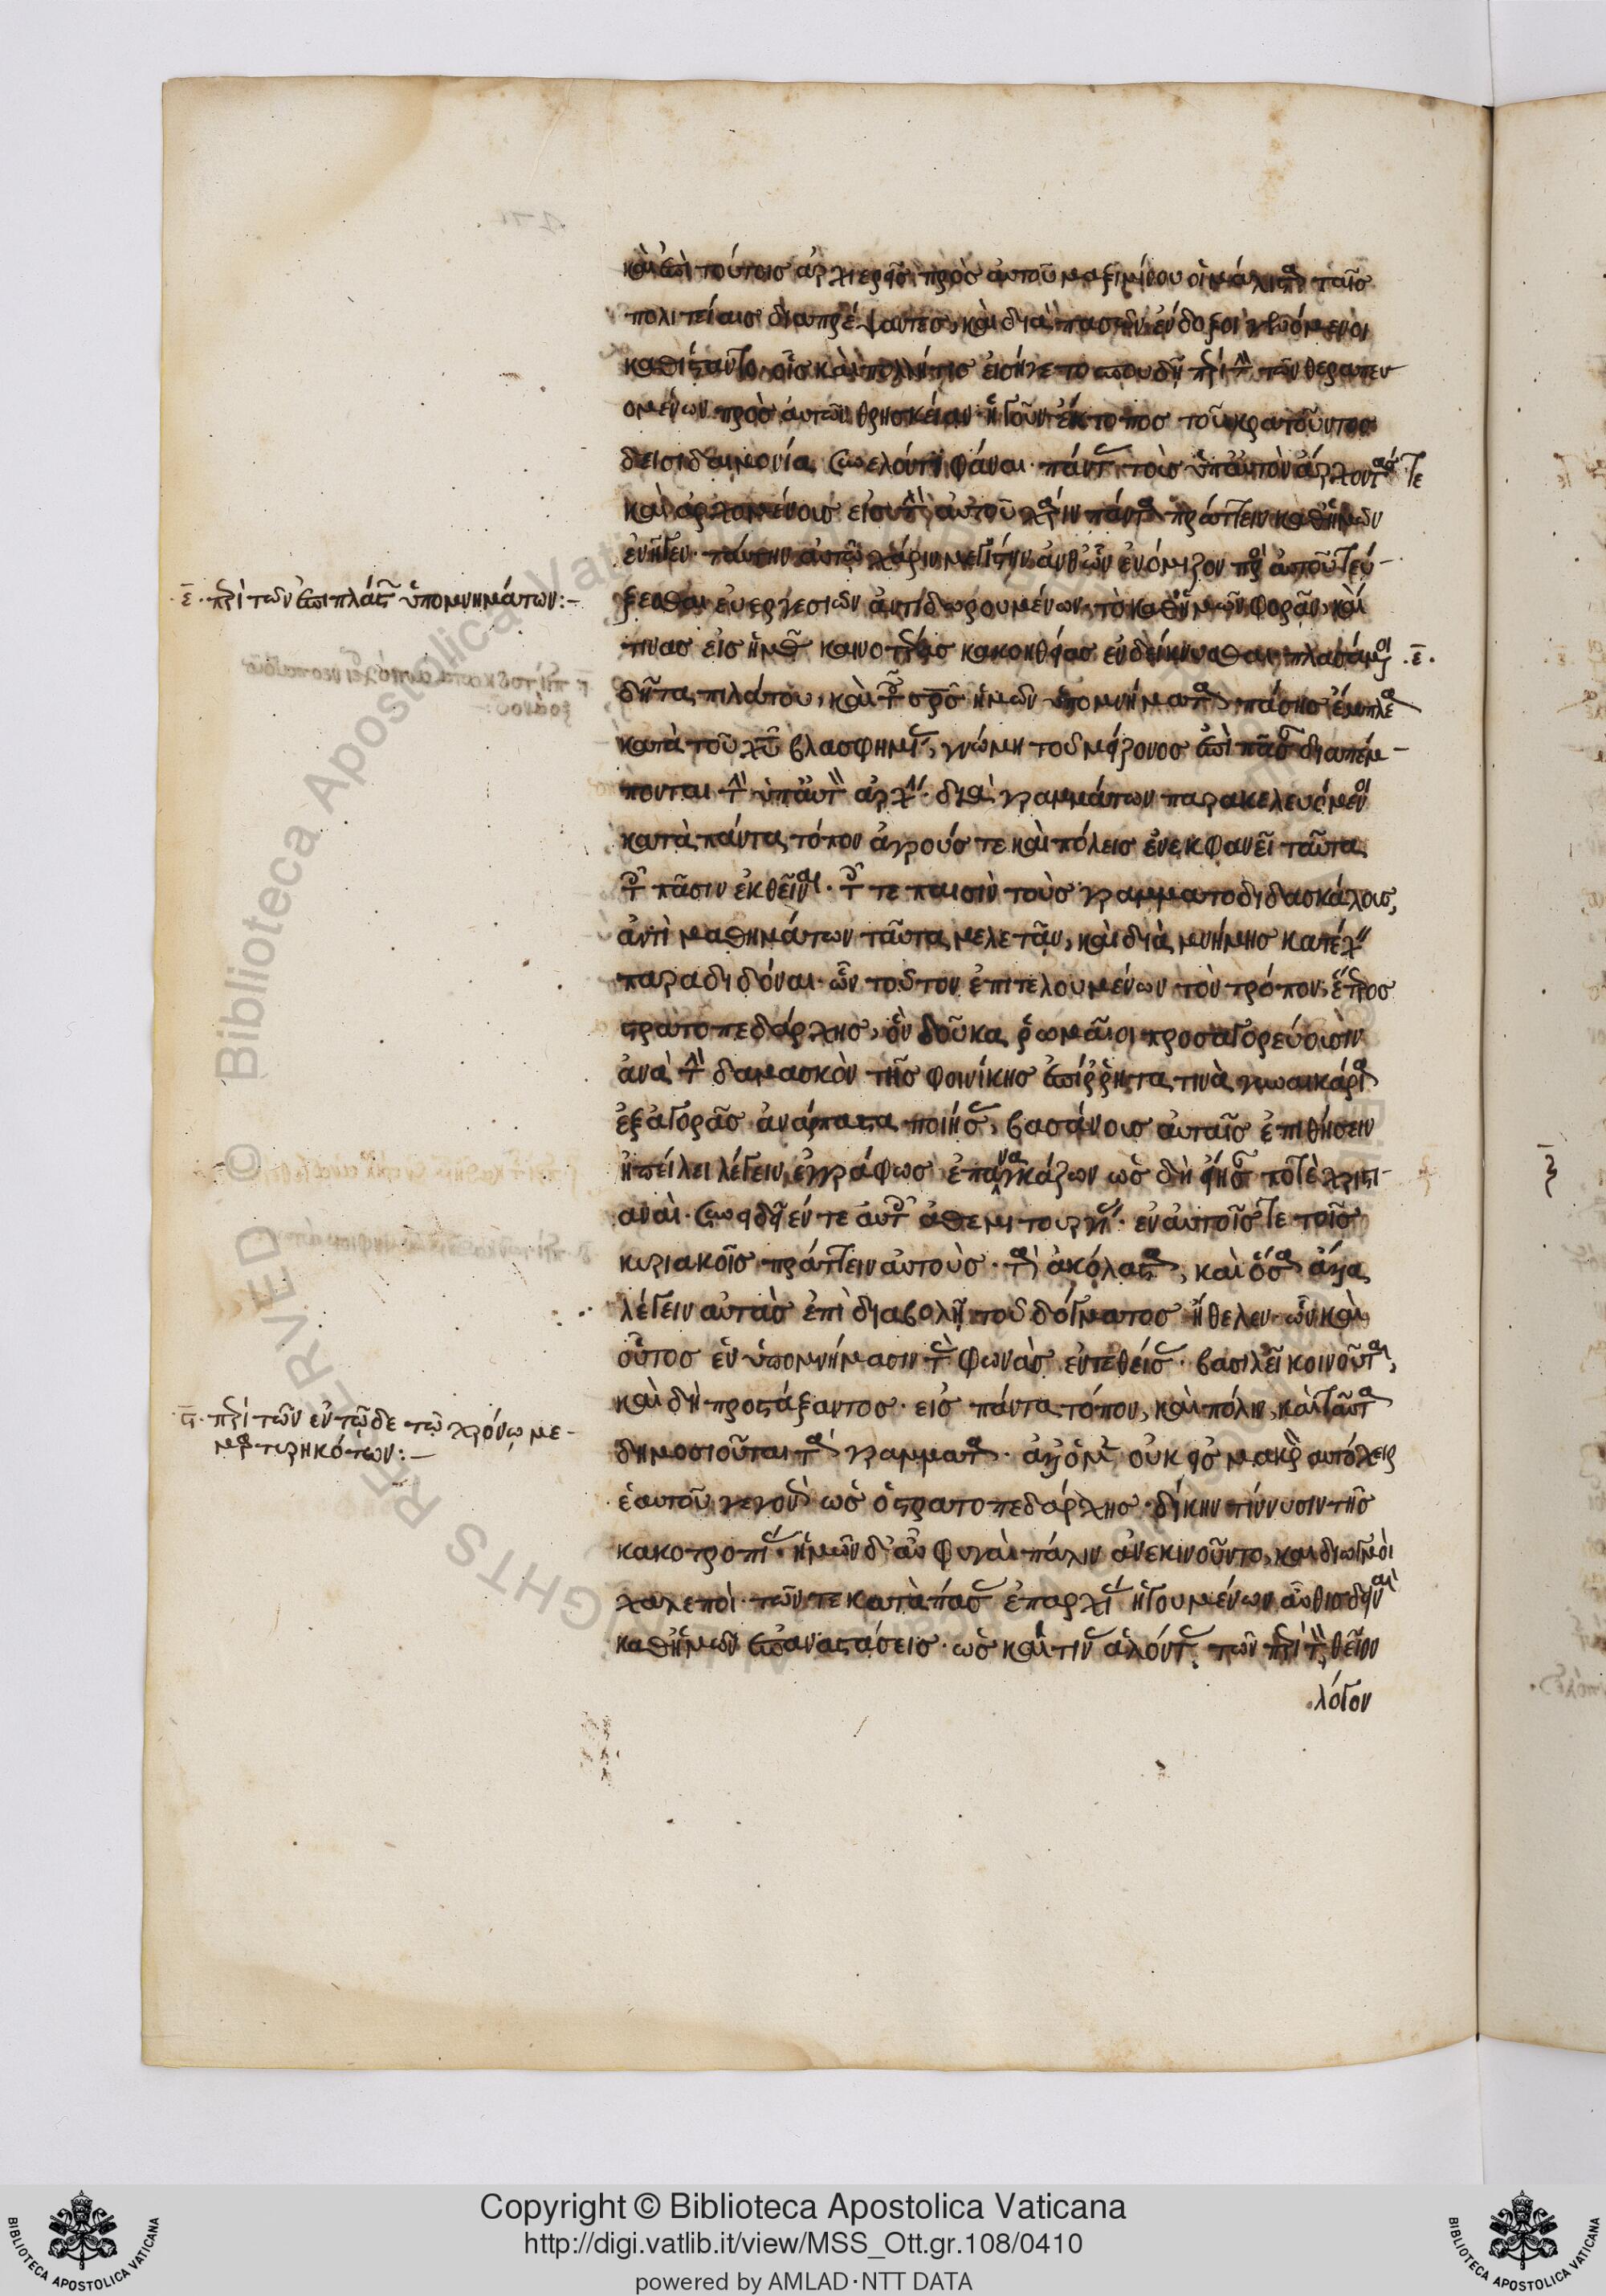 καὶ ἐπὶ τούτοις ἀρχιερεῖς πρὸς αὐτοῦ μαξιμίνου οἱ μάλιστα ταῖς
πολιτείαις διαπρέψαντες, καὶ διὰ πασῶν ἔνδοξοι γενόμενοι
καθίσταντο· οἷς καὶ πολλή τις εἰσήγετο σπουδὴ περὶ τὴν τῶν θεραπευ
ομένων πρὸς αὐτῶν θρησκείαν· ἡ γοῦν ἔκτοπος τοῦ κρατοῦντος
δεισιδαιμονία, συνελόντι φάναι· πάντας τοὺς ὑπ' αὐτὸν ἄρχοντάς τε
καὶ ἀρχομένους εἰς τὴν αὐτοῦ χάριν πάντα πράττειν καθ' ἡμῶν
ἐνῆγεν· ταύτην αὐτῷ χάριν μεγίστην ἀνθ' ὧν ἐνόμιζον πρὸς αὐτοῦ τεύ-
ξεσθαι εὐεργεσιῶν ἀντιδωρουμένων, τὸ καθ' ἡμῶν φορᾶν, καί
τινας εἰς ἡμᾶς καινοτέρας κακοηθείας ἐνδείκνυσθαι· πλασάμενοι .ε̅.
δῆτα πιλάτου, καὶ τοῦ σρ̅ο̅ς ἡμῶν ὑπομνήματα πάσης ἔμπλεα
κατὰ τοῦ χ̅υ̅ βλασφημίας, γνώμῃ τοῦ μείζονος ἐπὶ πᾶσαν διαπέμ-
πονται τὴν ὑπ' αὐτὸν ἀρχήν· διὰ γραμμάτων παρακελευόμενοι
κατὰ πάντα τόπον ἀγρούς τε καὶ πόλεις ἐν ἐκφανεῖ ταῦτα
τοῖς πᾶσιν ἐκθεῖναι· τοῖς τε παισὶ τοὺς γραμματοδιδασκάλους,
ἀντὶ μαθημάτων ταῦτα μελετᾶν, καὶ διὰ μνήμης κατέχειν
παραδιδόναι· ὧν τοῦτον ἐπιτελουμένων τὸν τρόπον, ἕτερος
στρατοπεδάρχης, ὃν δοῦκα ῥωμαῖοι προσαγορεύουσιν
ἀνὰ τὴν δαμασκὸν τῆς φοινίκης ἐπίρρητά τινα γυναικάρια
ἐξ ἀγορᾶς ἀνάρπαστα ποιήσας, βασάνους αὐταῖς ἐπιθήσειν
ἠπείλει λέγειν ἐγγράφως ἐπαναγκάζων ὡς δὴ εἴησάν ποτε χριστι-
αναί· συνειδεῖέν τε αὐτοῖς ἀθεμιτουργίας· ἐν αὐτοῖς τε τοῖς
κυριακοῖς πράττειν αὐτοὺς τὰ ἀκόλαστα, καὶ ὅσα ἄλλα
λέγειν αὐτὰς ἐπὶ διαβολῇ τοῦ δόγματος ἤθελεν· ὧν καὶ
οὗτος ἐν ὑπομνήμασιν τὰς φωνὰς ἐντεθείσας· βασιλεῖ κοινοῦται,
καὶ δὴ προστάξαντος· εἰς πάντα τόπον, καὶ πόλιν, καὶ ταῦτα
δημοσιοῦται τὰ γράμματα· ἀλλ' ὁ μὲν οὐκ εἰς μακρὸν αὐτόχειρ
ἑαυτοῦ γεγονὼς ὁ στρατοπεδάρχης· δίκην τίννυσιν τῆς
κακοτροπίας· ἡμῶν δ' αὖ φυγαὶ πάλιν ἀνεκινοῦντο, καὶ διωγμοὶ
χαλεποὶ· τῶν τε κατὰ πάσας ἐπαρχίας ἡγουμένων αὖθις δειναὶ
καθ' ἡμῶν ἐπαναστάσεις· ὡς καί τινας ἁλόντας τῶν περὶ τὸν θεῖον
λόγον
.ε̅. περὶ τῶν ἐπιπλάστων ὑπομνημάτων:-
ϛ̅. περὶ τῶν ἐν τῷδε τῷ χρόνῳ με-
μαρτυρηκότων:-
Copyright © Biblioteca Apostolica Vaticana
http://digi.vatlib.it/view/MSS_Ott.gr.108/0410
powered by AMLAD·NTT DATA